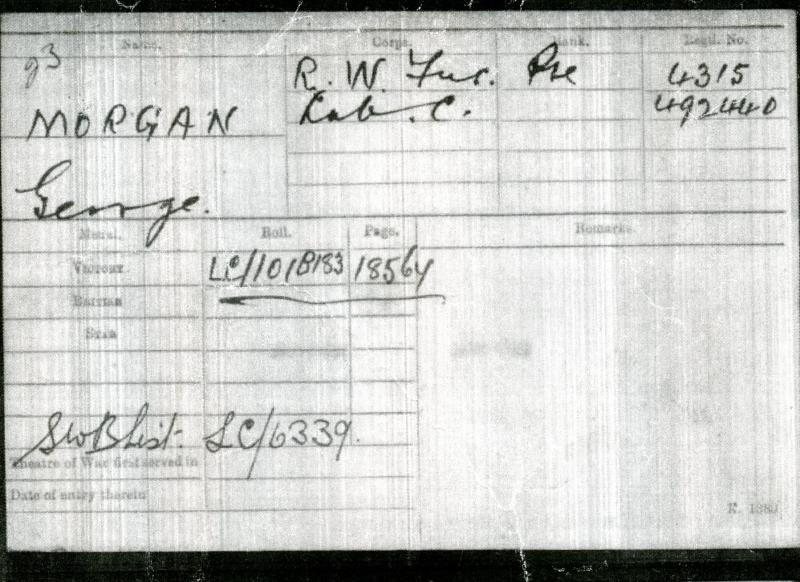 93 Name. Corps. Rank. Regtl. No.
R. W. Fus. Pte 4315
MORGAN Lab. C. 492440
George.
Medal. Roll. Page. Remarks.
Victory LC/101B183 18564
British
Star
SWB List LC/6339.
Theatre of War first served in
Date of entry therein
K. 1380